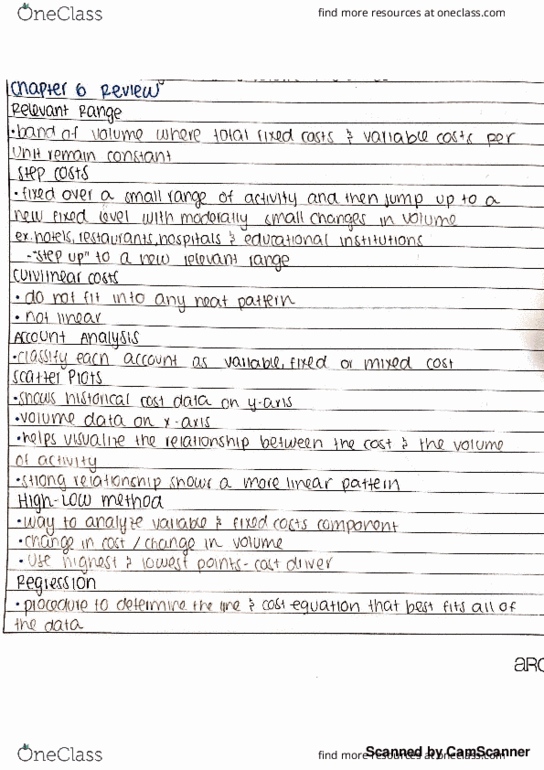 OneClass
find more resources at oneclass.com
Chapter 6 Review
Relevant Range
•band of volume where total fixed costs & variable costs per
unit remain constant
Step costs
•fixed over a small range of activity and then jump up to a
new fixed level with moderally small changes in volume
ex. hotels, restaurants, hospitals & educational institutions
-"step up" to a new relevant range
Curvlinear costs
• do not fit into any neat pattern
• not linear
Account Analysis
•classify each account as variable, fixed or mixed cost
Scatter Plots
•shows historical cost data on y-axis
•volume data on x-axis
•helps visualize the relationship between the cost & the volume
of activity
•strong relationship shows a more linear pattern
High-Low method
•way to analyze variable & fixed costs component
•change in cost / change in volume
•Use highest & lowest points - cost driver
Regression
• procedure to determine the line & cost equation that best fits all of
the data
ARC
OneClass
find more resources at oneclass.com
Scanned by CamScanner